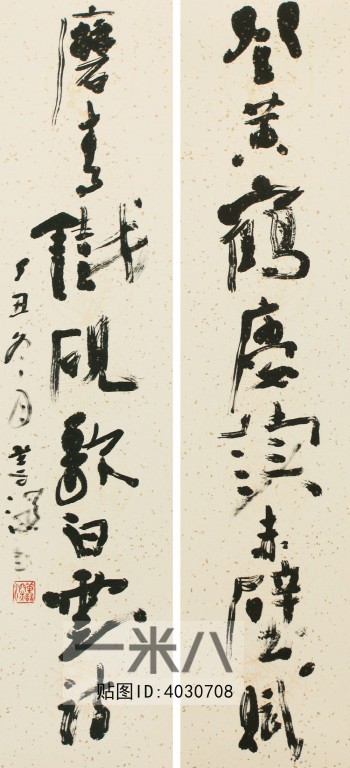 登黃鶴赤壁賦
磨青鐵硯歌白雲詩
丁丑冬月
一米八
贴图ID:4030708